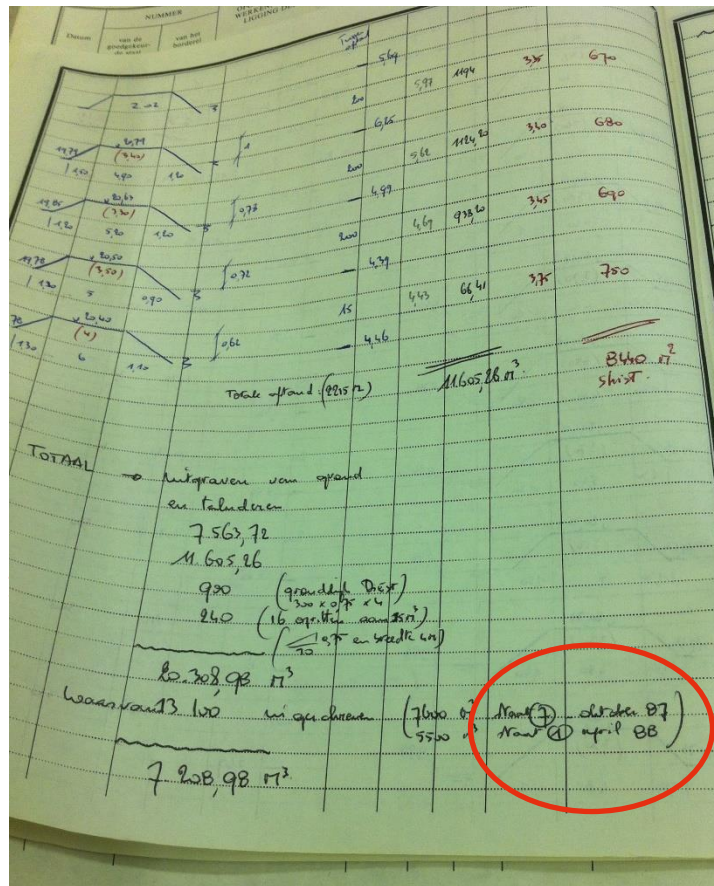 NUMMER
Datum
van de goedgekeur-
de staat
van het
borderel
LIGGING
5,69
5,97 1194 3,35 670
2.02
200
6,25
19,79 20,79 1
(3,40)
1,20 4,90 1,20
5,62 1124,20 3,40 680
200
4,99
19,85 20,63 0,78
(3,30)
1,20 5,20 1,20
4,69 938,20 3,45 690
200
4,39
19,78 20,50 0,72
(3,50)
1,20 5 0,90
4,43 66,41 3,75 750
15
4,46
78 20,40 0,62
(4)
1,30 6 1,10
Totale afstand: (2215 m) 11.605,26 m³ 8440 m²
shist.
TOTAAL → uitgraven van grond
en taluderen
7.563,72
11.605,26
900 (gronddijk Diest)
300 x 0,75 x 4
240 (16 opritten aan 15m³)
10 0,75 en breedte 4m)
20.308,98 m³
Waarvan 13 100 ingeschreven (7600 m³ Staat 7 oktober 87)
5500 m³ Staat 1 april 88
7 208,98 m³